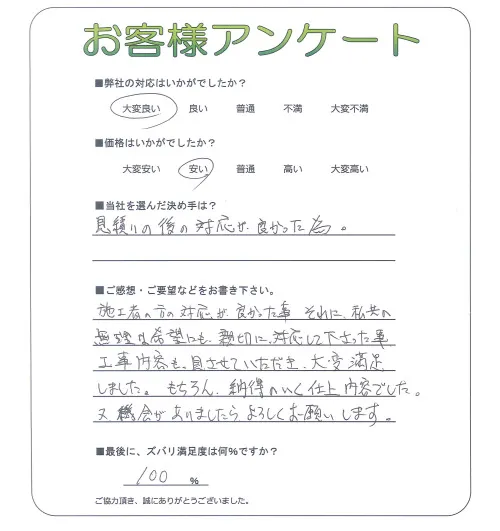 お客様アンケート
■弊社の対応はいかがでしたか？
大変良い 良い 普通 不満 大変不満
■価格はいかがでしたか？
大変安い 安い 普通 高い 大変高い
■当社を選んだ決め手は？
見積りの後の対応が良かった為。
■ご感想・ご要望などをお書き下さい。
施工者の方の対応が良かった事 それに、私共の
無理な希望にも、親切に対応して下さった事
工事内容も。見させていただき、大変満足
しました。もちろん、納得のいく仕上内容でした。
又機会がありましたらよろしくお願いします。
■最後に、ズバリ満足度は何％ですか？
100 ％
ご協力頂き、誠にありがとうございました。